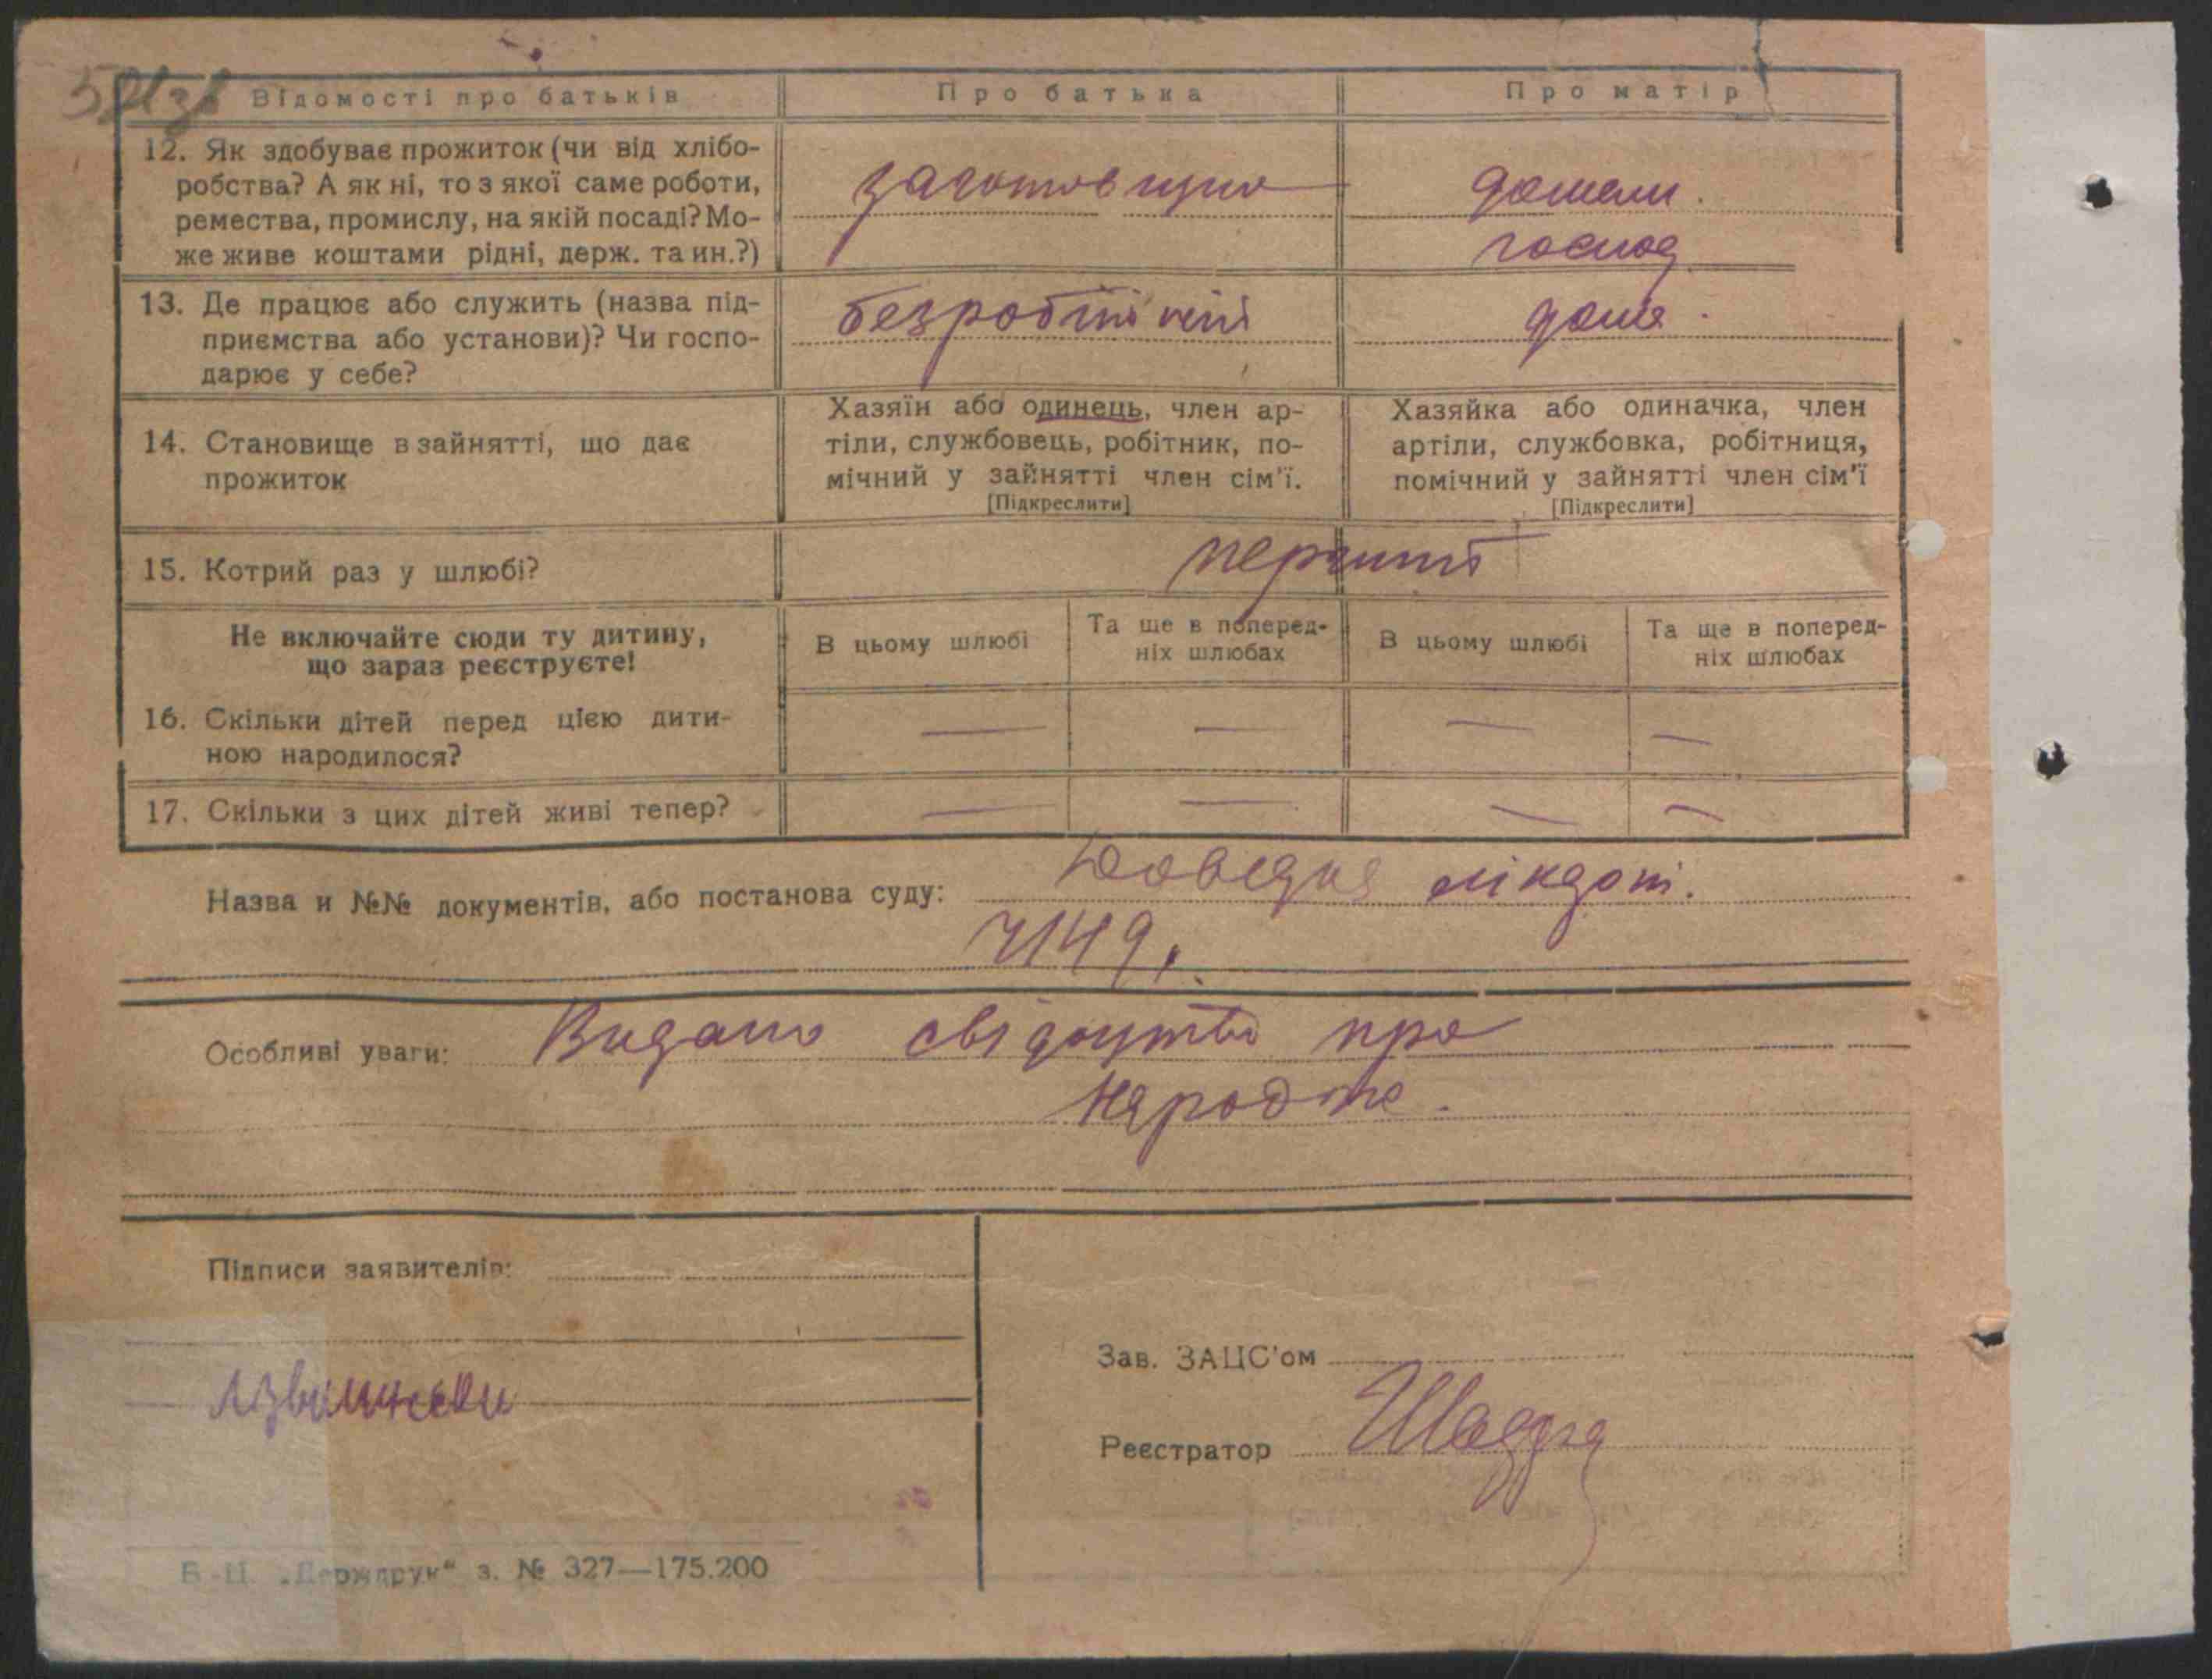 Відомості про батьків
Про батька
Про матір
12. Як здобуває прожиток (чи від хлібо-
робства? А як ні, то з якої саме роботи,
ремества, промислу, на якій посаді? Мо-
же живе коштами рідні, держ. та ин.?)
домашн.
господ
13. Де працює або служить (назва під-
приємства або установи)? Чи госпо-
дарює у себе?
безробітний
дома.
14. Становище в зайнятті, що дає
прожиток
Хазяїн або одинець, член ар-
тіли, службовець, робітник, по-
мічний у зайнятті член сім'ї.
[Підкреслити]
Хазяйка або одиначка, член
артіли, службовка, робітниця,
помічний у зайнятті член сім'ї
[Підкреслити]
15. Котрий раз у шлюбі?
перший
Не включайте сюди ту дитину,
що зараз реєструєте!
В цьому шлюбі
Та ще в поперед-
ніх шлюбах
В цьому шлюбі
Та ще в поперед-
ніх шлюбах
16. Скільки дітей перед цією дити-
ною народилося?
— — — —
17. Скільки з цих дітей живі тепер?
— — — —
Назва и №№ документів, або постанова суду: Довідка
Особливі уваги: Видано свідоцтво про
Підписи заявителів:
Зав. ЗАЦС'ом
Реєстратор
Б-Ц. „Держдрук“ з. № 327—175.200